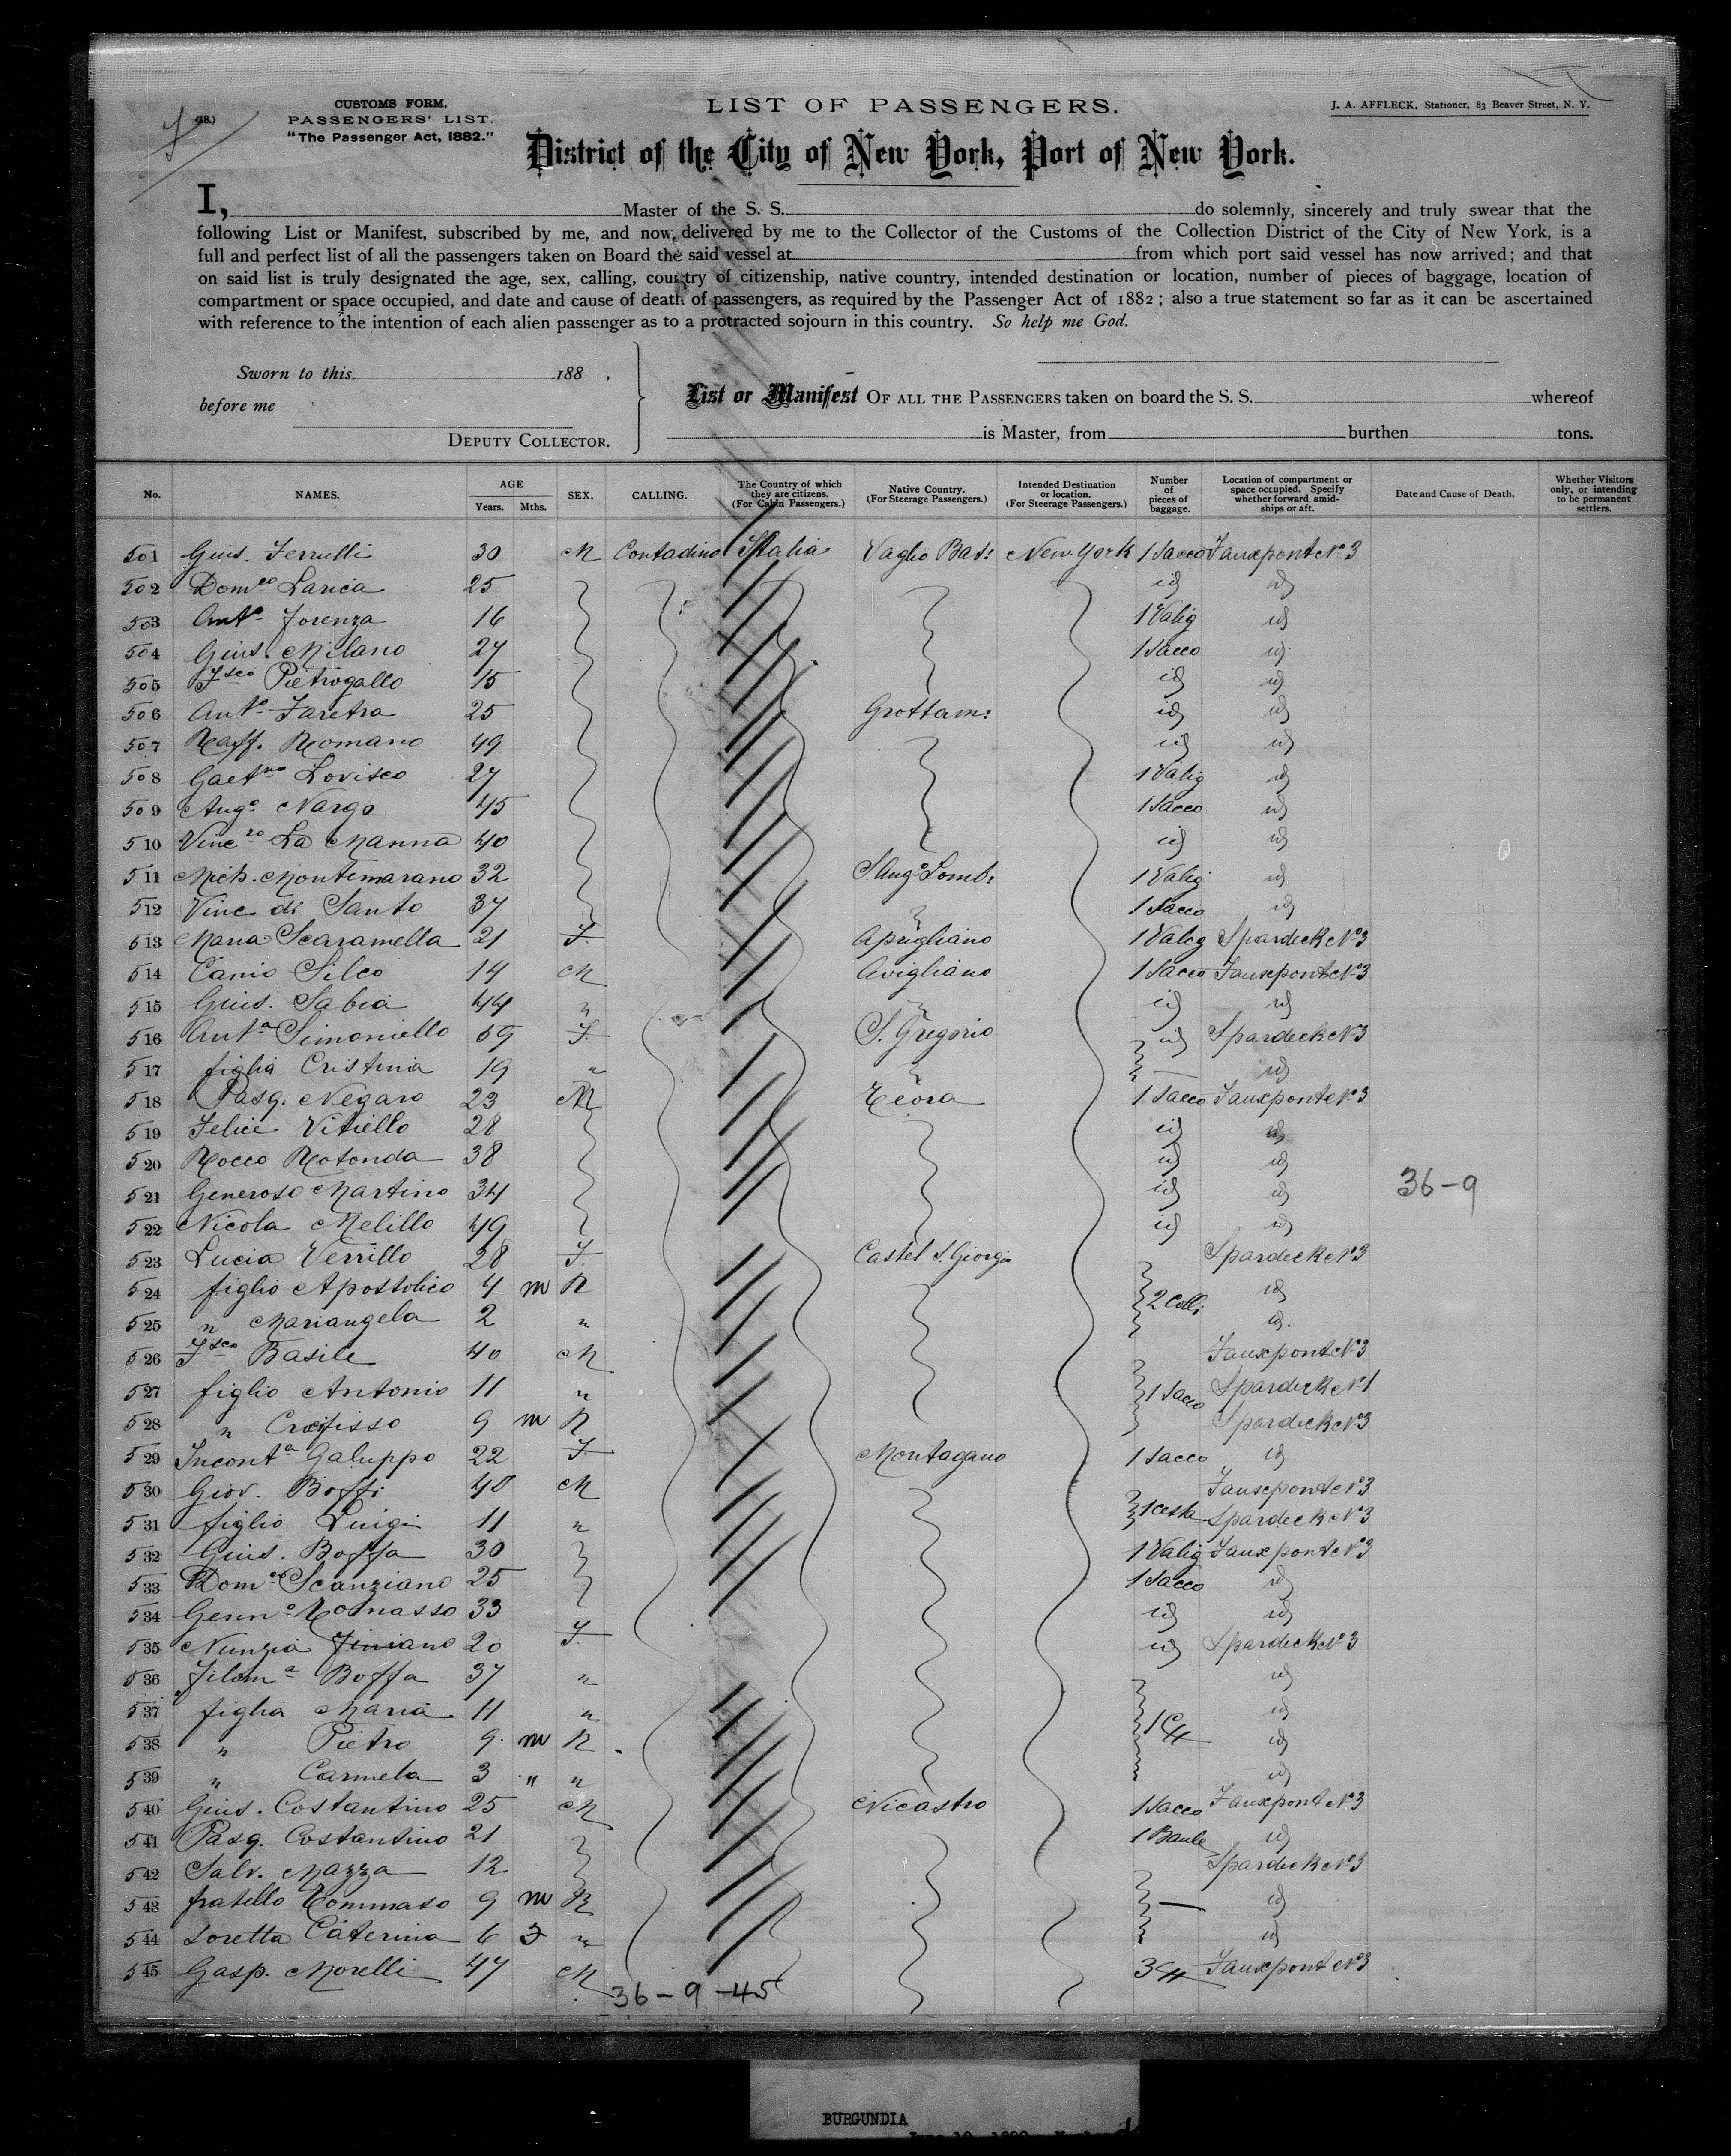 (18.)
CUSTOMS FORM,
PASSENGERS' LIST.
"The Passenger Act, 1882."
LIST OF PASSENGERS.
J. A. AFFLECK, Stationer, 83 Beaver Street, N. Y.
District of the City of New York, Port of New York.
I, Master of the S. S. do solemnly, sincerely and truly swear that the
following List or Manifest, subscribed by me, and now delivered by me to the Collector of the Customs of the Collection District of the City of New York, is a
full and perfect list of all the passengers taken on Board the said vessel at from which port said vessel has now arrived; and that
on said list is truly designated the age, sex, calling, country of citizenship, native country, intended destination or location, number of pieces of baggage, location of
compartment or space occupied, and date and cause of death of passengers, as required by the Passenger Act of 1882; also a true statement so far as it can be ascertained
with reference to the intention of each alien passenger as to a protracted sojourn in this country. So help me God.
Sworn to this 188 .
before me
DEPUTY COLLECTOR.
List or Manifest OF ALL THE PASSENGERS taken on board the S. S. whereof
is Master, from burthen tons.
No. NAMES. AGE Years. Mths. SEX. CALLING. The Country of which they are citizens. (For Cabin Passengers.) Native Country. (For Steerage Passengers.) Intended Destination or location. (For Steerage Passengers.) Number of pieces of baggage. Location of compartment or space occupied. Specify whether forward amidships or aft. Date and Cause of Death. Whether Visitors only, or intending to be permanent settlers.
501 Gius. Ferrulli 30 M Contadino Italia Vaglio Bas: New York 1 Sacco Fauxpont No 3
502 Domco Larica 25 id id
503 Anto Forenza 16 1 Valig id
504 Gius. Milano 27 1 Sacco id
505 Fsco Pietrogallo 15 id id
506 Anto Faretra 25 Grottam: id id
507 Raff. Romano 49 id id
508 Gaetno Lovisco 27 1 Valig id
509 Ango Nargo 45 1 Sacco id
510 Vinczo La Manna 40 id id
511 Mich. Montemarano 32 S. Ango Lomb: 1 Valig id
512 Vinc di Santo 37 1 Sacco id
513 Maria Scaramella 21 F. Aprigliano 1 Valig Spardeck No 3
514 Canio Sileo 14 M Avigliano 1 Sacco Fauxpont No 3
515 Gius. Sabia 44 " id id
516 Anta Simoniello 59 F. S. Gregorio id Spardeck No 3
517 figlia Cristina 19 " — id
518 Pasq. Negaro 23 M Teora 1 Sacco Fauxpont No 3
519 Felice Vitiello 28 id id
520 Rocco Rotonda 38 id id
521 Generoso Martino 34 id id 36-9
522 Nicola Melillo 49 id id
523 Lucia Verrillo 28 F. Castel S. Giorgio Spardeck No 3
524 figlio Apostolico 4 m R 2 Colli id
525 " Mariangela 2 " id.
526 Fsco Basile 40 M Fauxpont No 3
527 figlio Antonio 11 " 1 Sacco Spardeck No 1
528 " Crocifisso 9 m R Spardeck No 3
529 Inconta Galuppo 22 F Montagano 1 Sacco id
530 Giov. Boffi 40 M Fauxpont No 3
531 figlio Luigi 11 " 1 Cesta Spardeck No 3
532 Gius. Boffa 30 1 Valig Fauxpont No 3
533 Domco Scanziano 25 1 Sacco id
534 Genno Romasso 33 id id
535 Nunzia 20 F. id Spardeck No 3
536 Filoma Boffa 37 " id
537 figlia Maria 11 " id
538 " Pietro 9 m R id
539 " Carmela 3 " " id
540 Gius. Costantino 25 M Nicastro 1 Sacco Fauxpont No 3
541 Pasq. Costantino 21 1 Baule id
542 Salv. Mazza 12 Spardeck No 3
543 fratello Tommaso 9 m R — id
544 Soretta Caterina 6 F " id
545 Gasp. Morelli 47 M Fauxpont No 3
36-9-45
BURGUNDIA